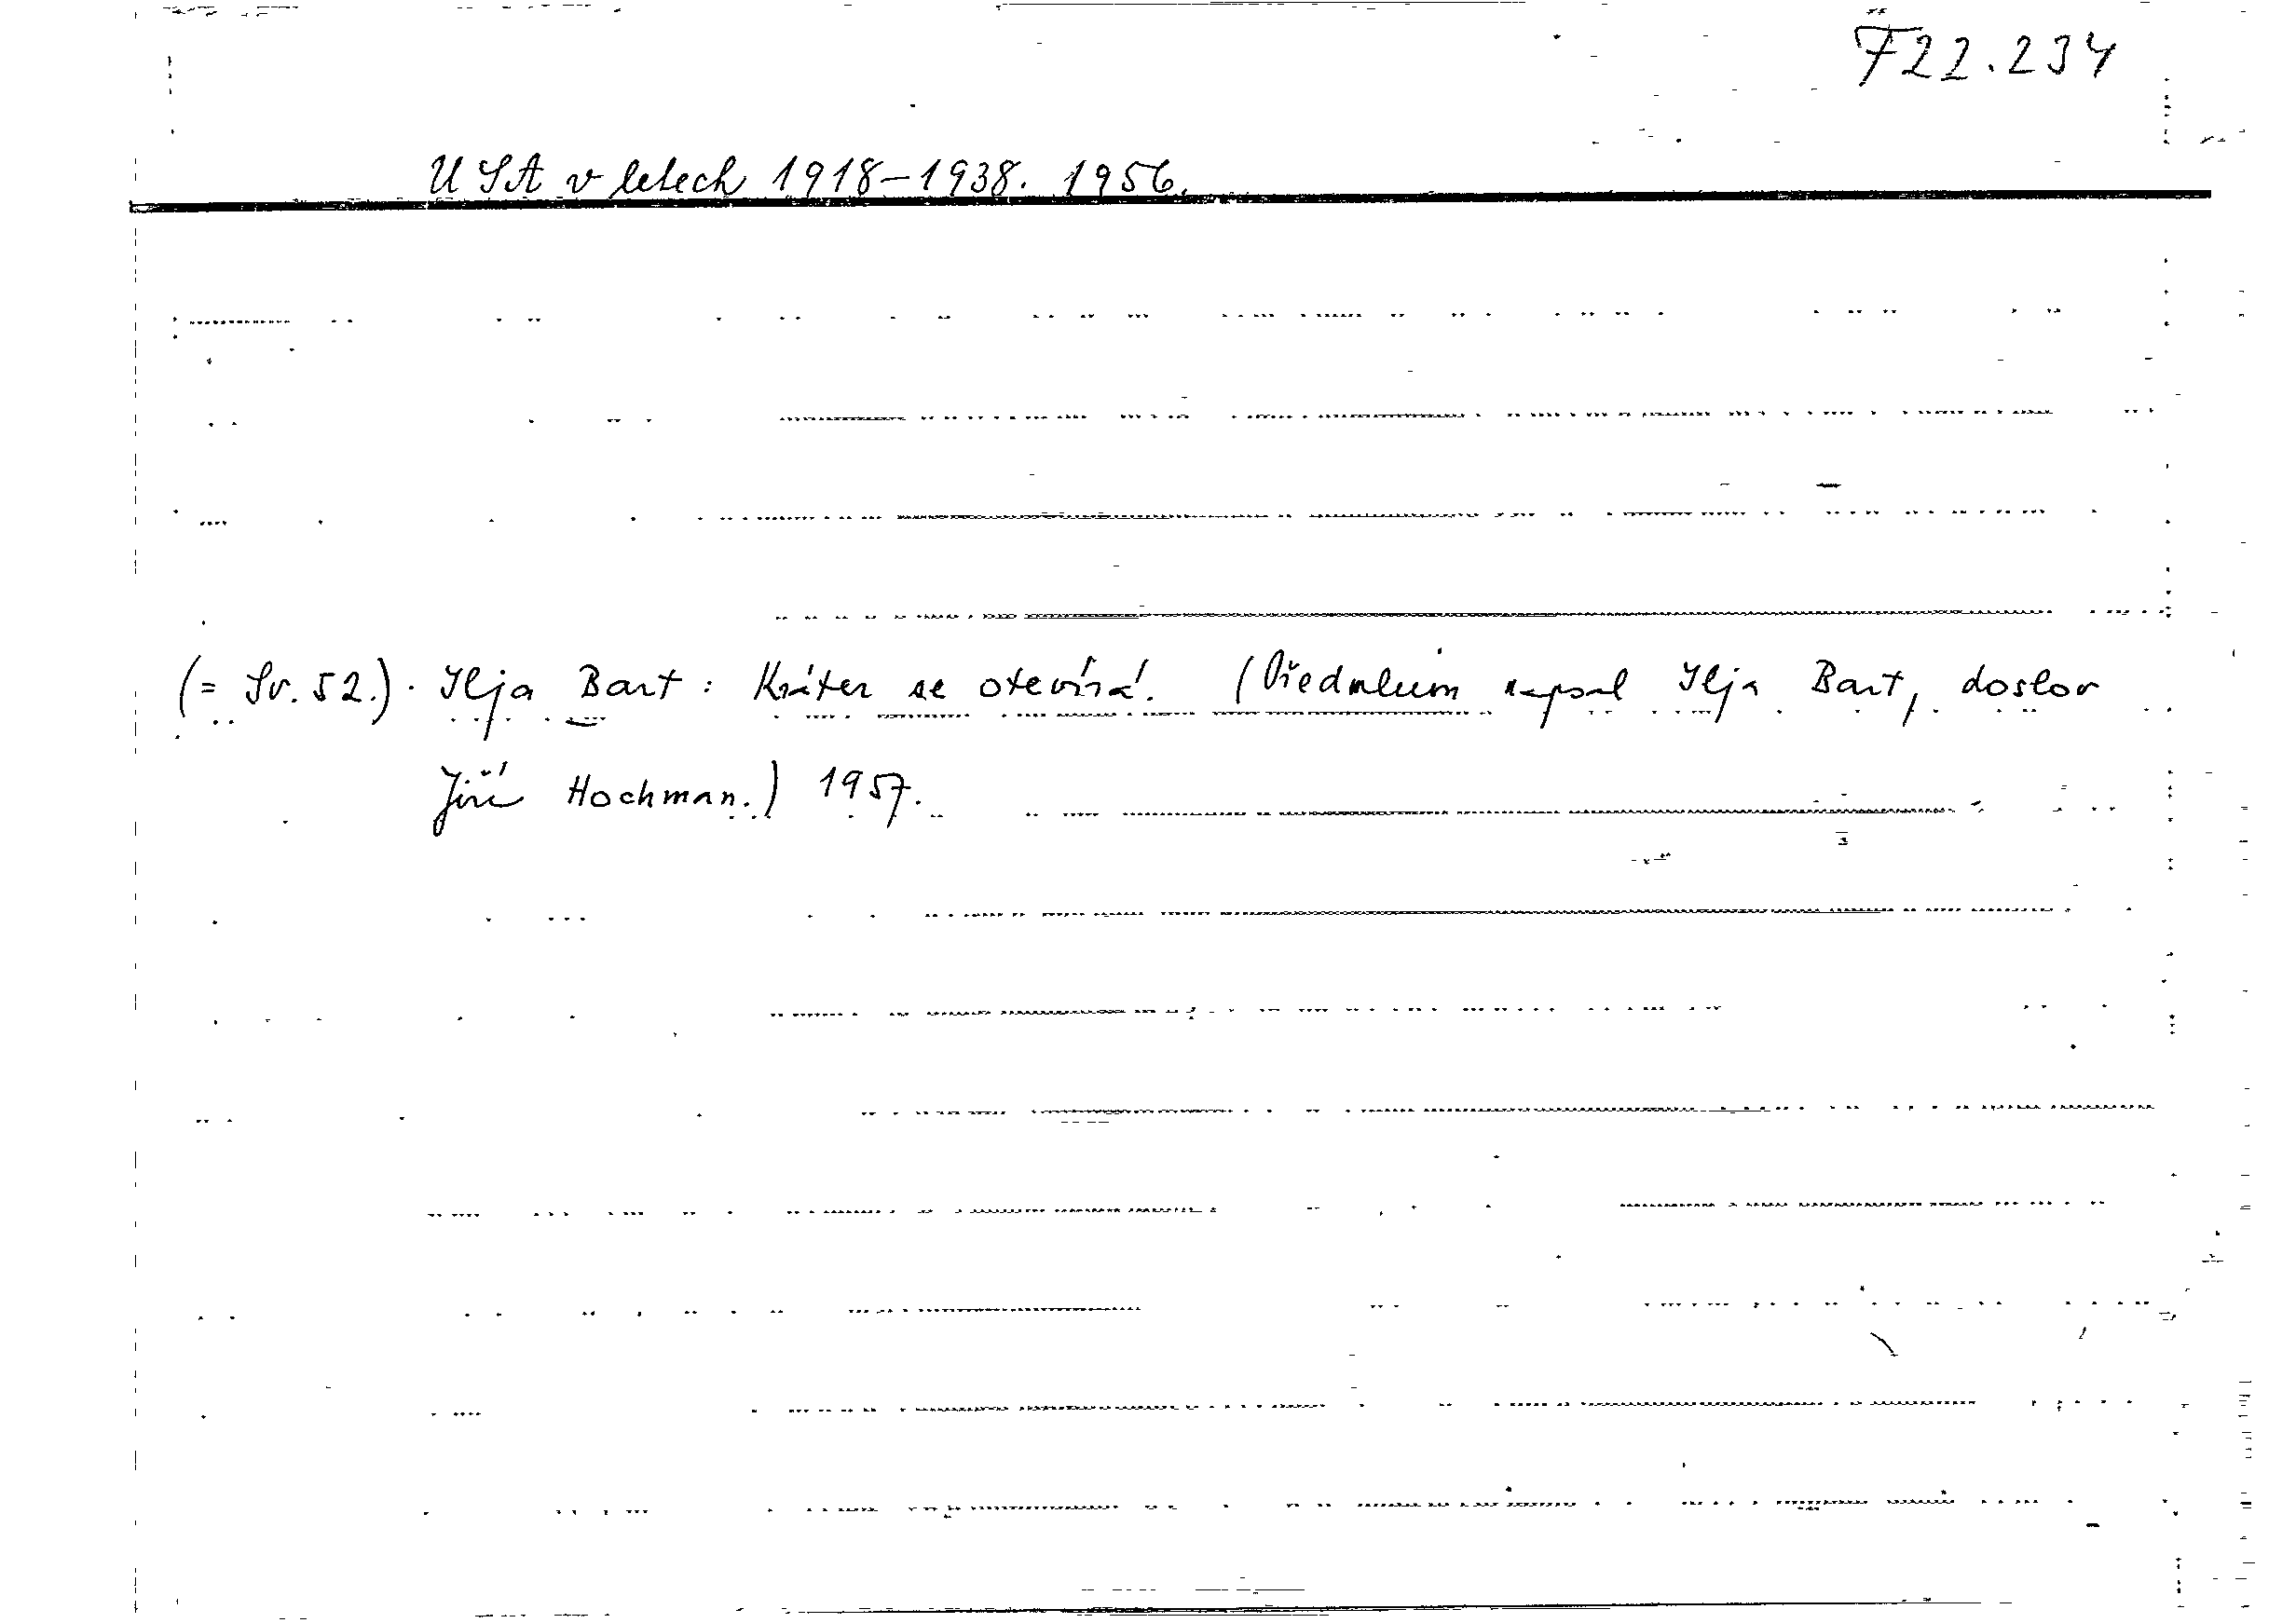 F 22.234
USA v letech 1918-1938. 1956.
(= Sv. 52.). Ilja Bart: Kráter se otevírá. (Předmluvu napsal Ilja Bart, doslov
Jiří Hochman.) 1957.